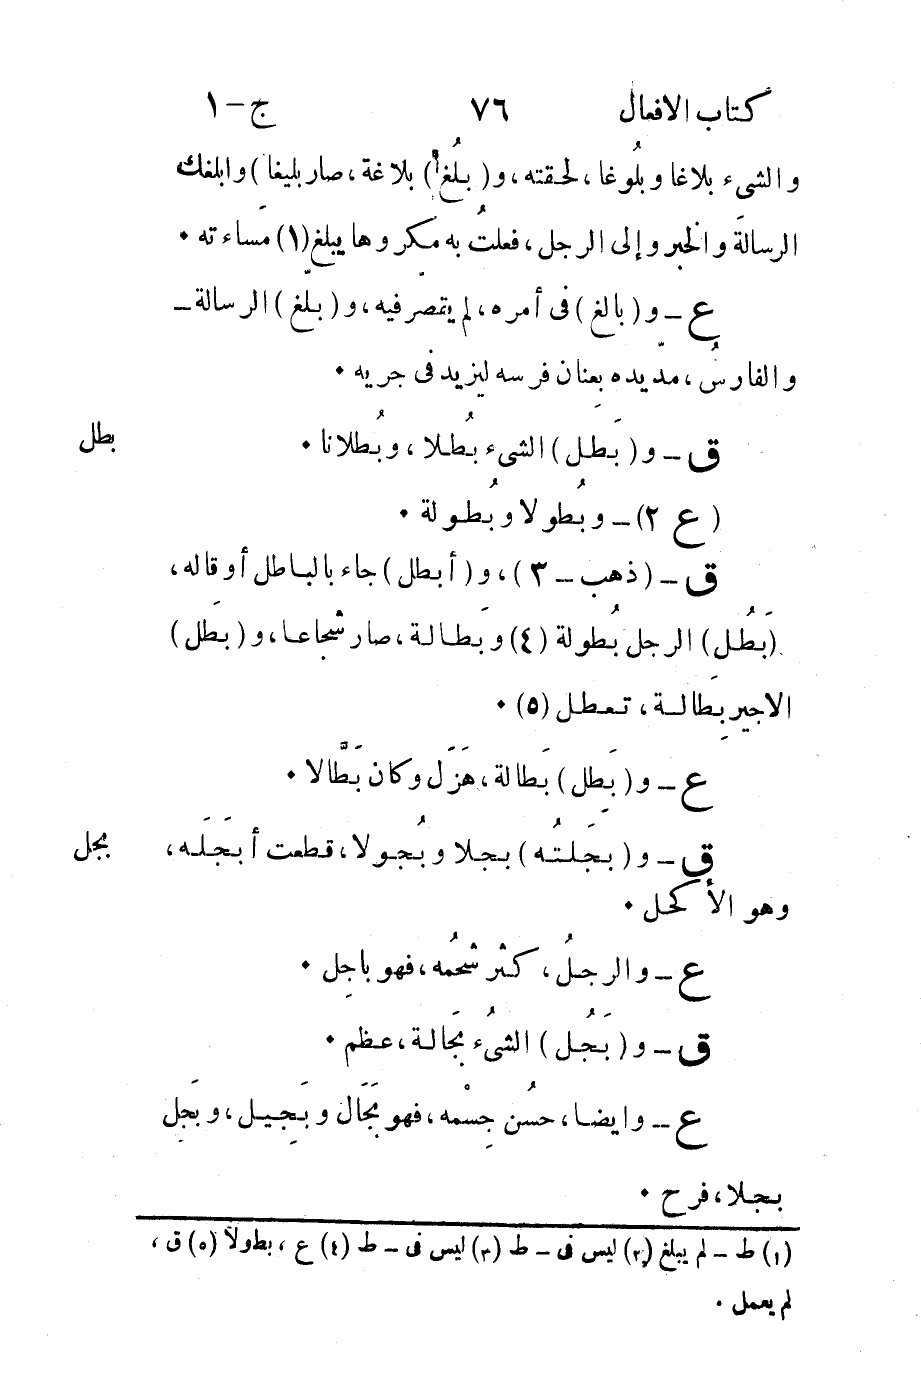 كتاب الافعال ٧٦ ج – ١
والشىء بلاغا وبُلُوغا، لحقته، و( بلُغ ) بلاغة، صار بليغا ) وابلغك
الرسالةَ والخبر وإلى الرجل، فعلتُ به مكروها يبلغ (١) مَساءته •
ع – و ( بالغ ) فى أمره، لم يقصر فيه، و ( بلّغ ) الرسالة –
والفارسُ، مدّ يده بعنان فرسه ليزيد فى جريه •
ق – و ( بَطل ) الشىء بُطلا، وبُطلانا • بطل
( ع ٢) – وبُطولا وبُطولة •
ق – ( ذهب – ٣ )، و ( أبطل ) جاء بالباطل أوقاله،
(بَطُل) الرجل بُطولة (٤) وبَطالة، صار شجاعا، و ( بَطل )
الاجير بِطالة، تعطل (٥) •
ع – و ( بَطِل ) بَطالة، هَزَل وكان بَطَّالا •
ق – و ( بجَلتُه ) بجلا وبُجولا، قطعت أبجَلَه، بجل
وهو الأكحل •
ع – والرجلُ، كثر شحمُه، فهو باجِل •
ق – و ( بَجُل ) الشىُء بَجالة، عظم •
ع – وايضا، حسُن جِسْمه، فهو بَجَال وبَجِيل، وبَجِل
بجلا، فرح •
(١) ط – لم يبلغ (٢) ليس فى – ط (٣) ليس فى – ط (٤) ع، بطولاً (٥) ق،
لم يعمل •